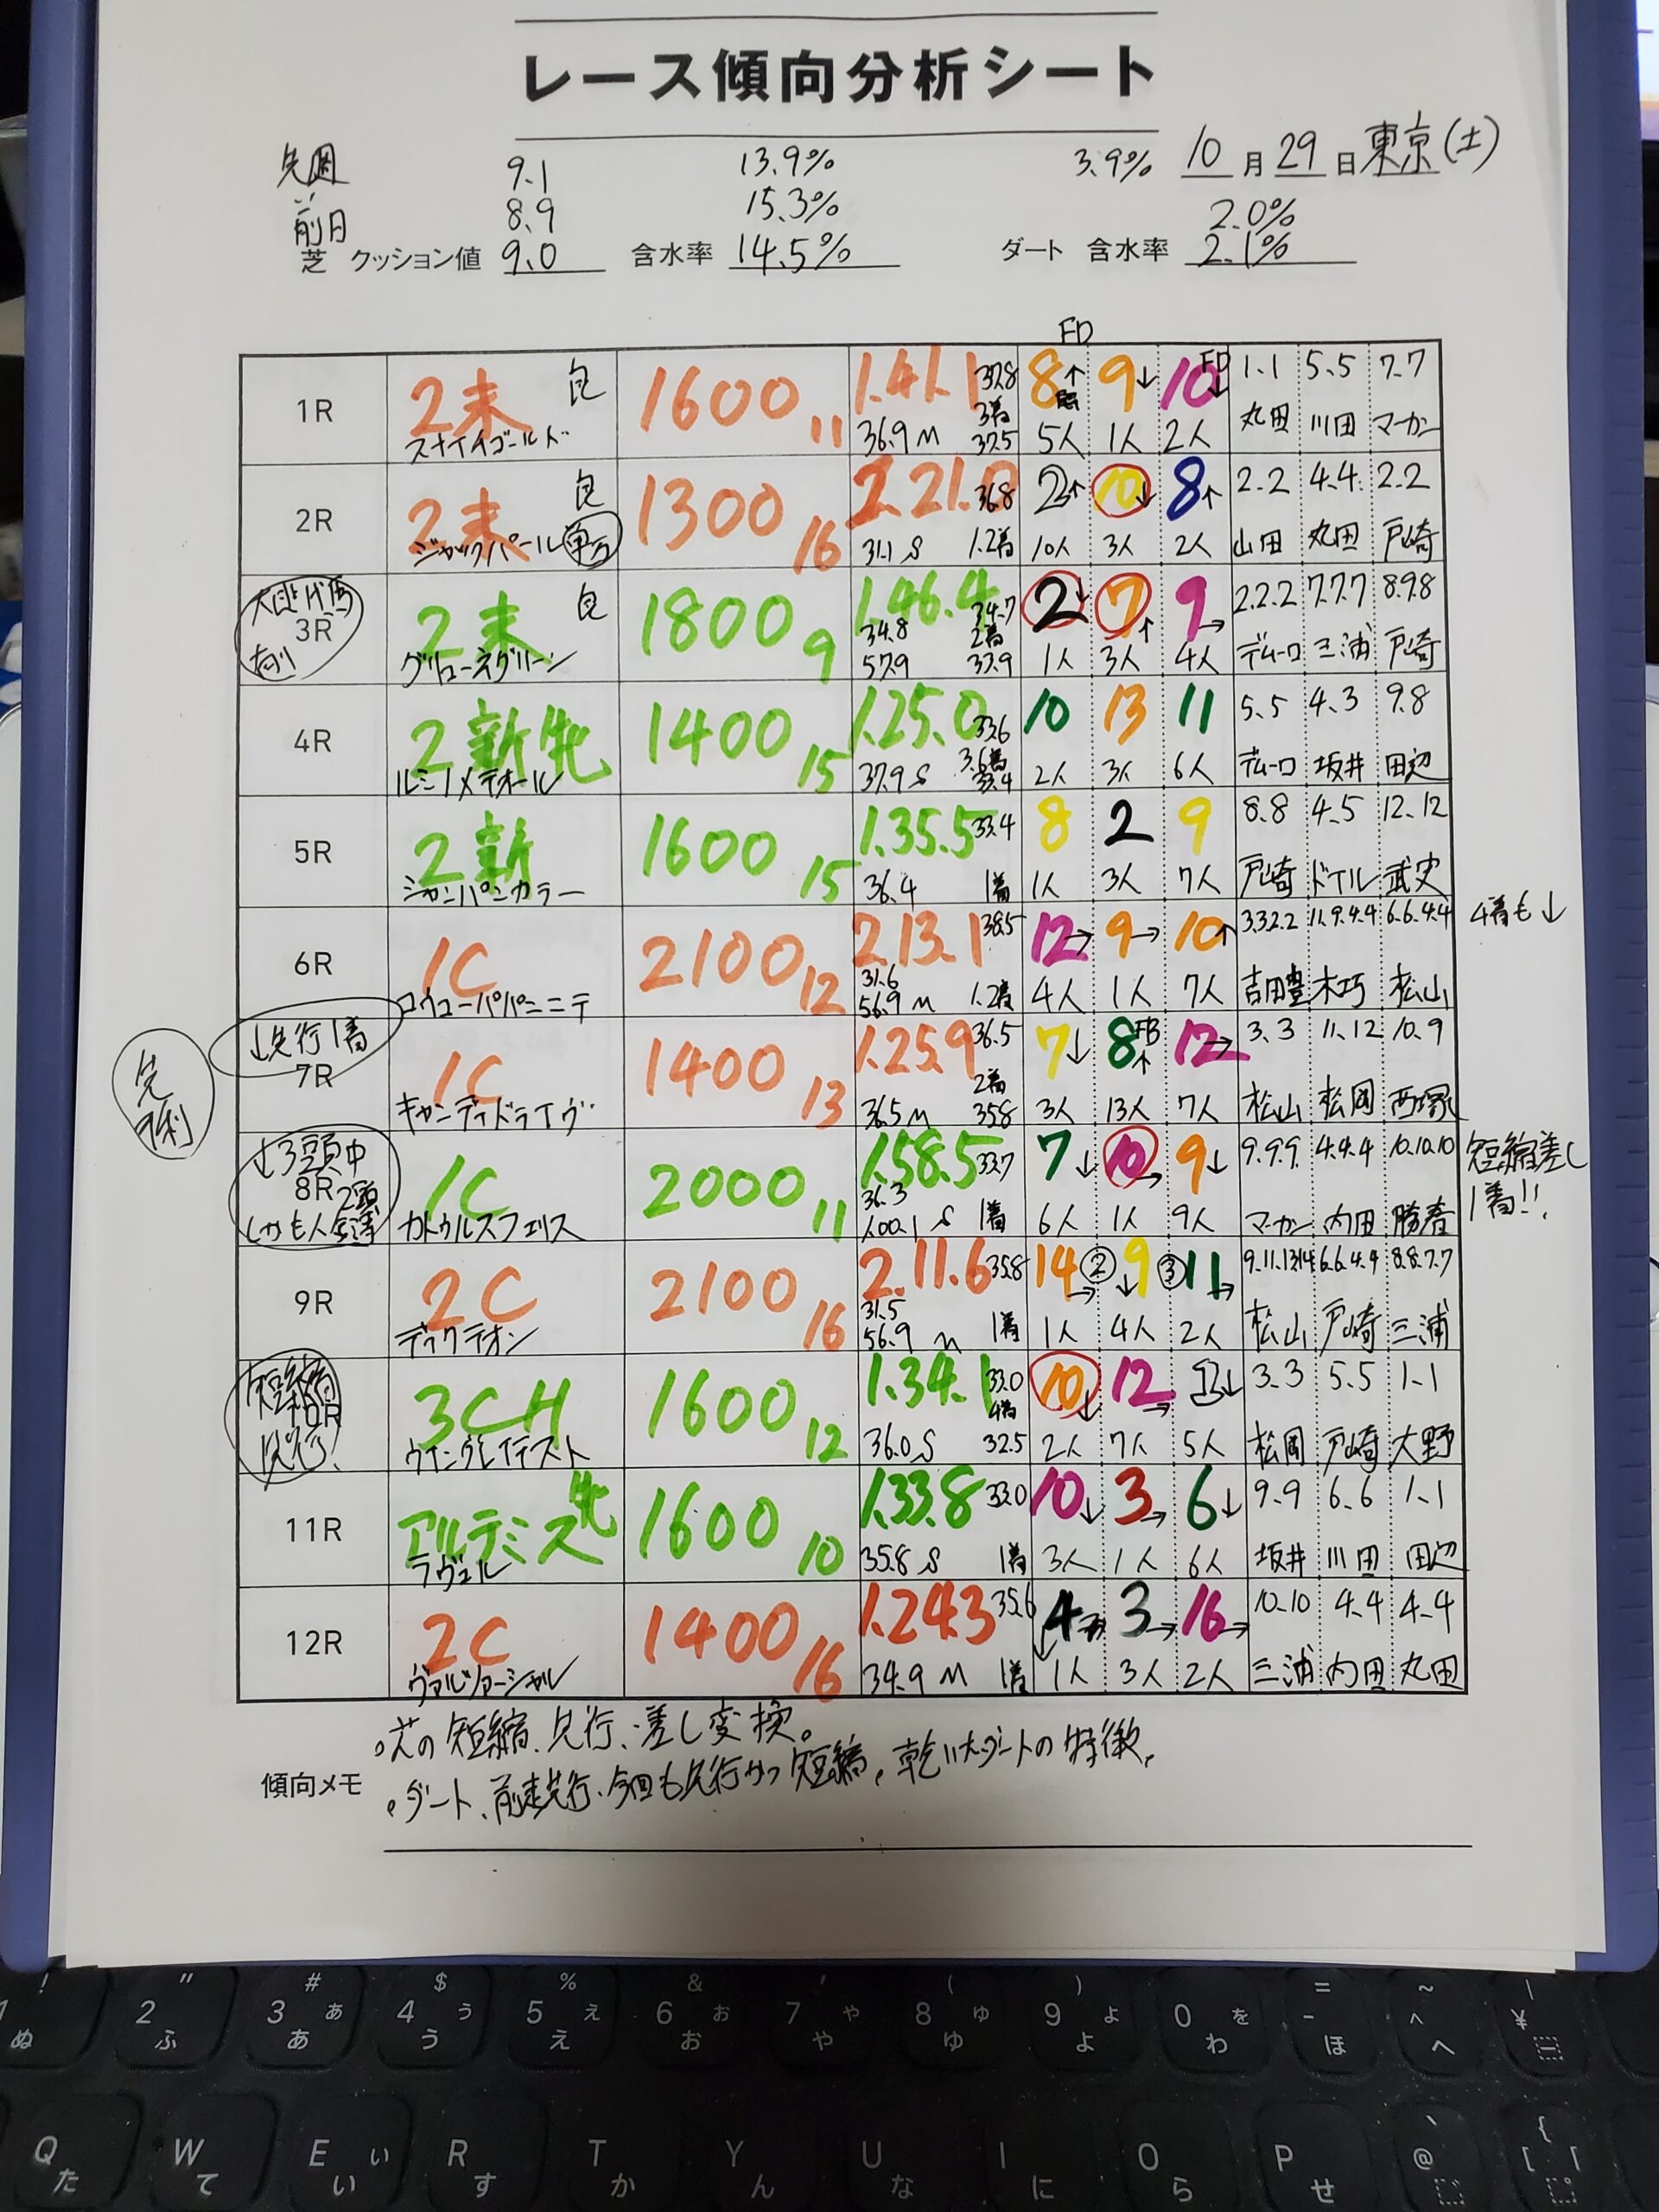 レース傾向分析シート
先週 9.1 13.9% 3.9% 10月29日東京(土)
前日 8.9 15.3% 2.0%
芝 クッション値 9.0 含水率 14.5% ダート 含水率 2.1%
FD
1R 2未 1600 11 1.41.1 37.8 8↑ 9↓ 10↓ FD 1.1 5.5 7.7
3着
スナイチゴールド 36.9 M 37.5 5人 1人 2人 丸田 川田 マーカン
2R 2未 1300 16 2.21. 36.8 2↑ 10↓ 8↑ 2.2 4.4. 2.2
ジャックパール 31.1 S 1.2着 10人 3人 2人 山田 丸田 戸崎
3R 2未 1800 9 1.46.4 34.7 2↓ 7↑ 9→ 2.2.2 7.7.7 8.9.8
有利 34.8 2着
グリューネグリーン 57.9 37.9 1人 3人 4人 デムーロ 三浦 戸崎
4R 2新牝 1400 15 1.25.0 33.6 10 13 11 5.5 4.3 9.8
ルミノメテオール 37.9 S 3.6着 2人 3人 6人 デムーロ 坂井 田辺
5R 2新 1600 15 1.35.5 33.4 8 2 9 8.8 4.5 12.12
シャンパンカラー 36.4 1着 1人 3人 7人 戸崎 ドイル 武史
6R 1C 2100 12 2.13.1 38.5 12→ 9→ 10↑ 3.3.2.2 11.9.4.4 6.6.4.4 4着も↓
31.6
56.9 M 1.2着 4人 1人 7人 吉田豊 木巧 松山
先行
有利
↓先行1着
7R 1C 1400 13 1.25.9 36.5 7↓ 8↑ 12→ 3.3 11.12 10.9
2着
キャンディドライヴ 36.5 M 35.8 3人 13人 7人 松山 松岡 西塚
↓3頭中
8R 2頭 1C 2000 11 1.58.5 33.7 7↓ 10→ 9↓ 9.9.9. 4.4.4 10.10.10 短縮差し
36.3 1着!!
しかも人気薄 カトゥルスフェリス 1.00.1 S 1着 6人 1人 9人 マーカン 内田 勝春
9R 2C 2100 16 2.11.6 35.8 14→ ②9↓ ③11→ 9.11.13.14 6.6.4.4 8.8.7.7
31.5
デクテオン 56.9 M 1着 1人 4人 2人 松山 戸崎 三浦
短縮
10R 3CH 1600 12 1.34.1 33.0 10↓ 12→ 3.3 5.5 1.1
4着
先行! ウインクレイテスト 36.0 S 32.5 2人 7人 5人 松岡 戸崎 大野
11R アルテミス 牝 1600 10 1.33.8 33.0 10↓ 3→ 6↓ 9.9 6.6 1.1
ラヴェル 35.8 S 1着 3人 1人 6人 坂井 川田 田辺
12R 2C 1400 16 1.24.3 35.6 4 3→ 16→ 10.10 4.4 4.4
ヴァルツァーシャル 34.9 M 1着 1人 3人 2人 三浦 内田 丸田
。芝の短縮、先行、差し変換。
傾向メモ 。ダート、前走先行、今回も先行かつ短縮。乾いたダートの特徴。
! " # $ % & ' ( ) = ~ |
1 ぬ 2 ふ 3 ぁ あ 4 ぅ う 5 ぇ え 6 ぉ お 7 ゃ や 8 ゅ ゆ 9 ょ よ 0 を わ - ほ ^ へ ¥
Q た W て E ぃ い R す T か Y ん U な I に O ら P せ @ [ 「